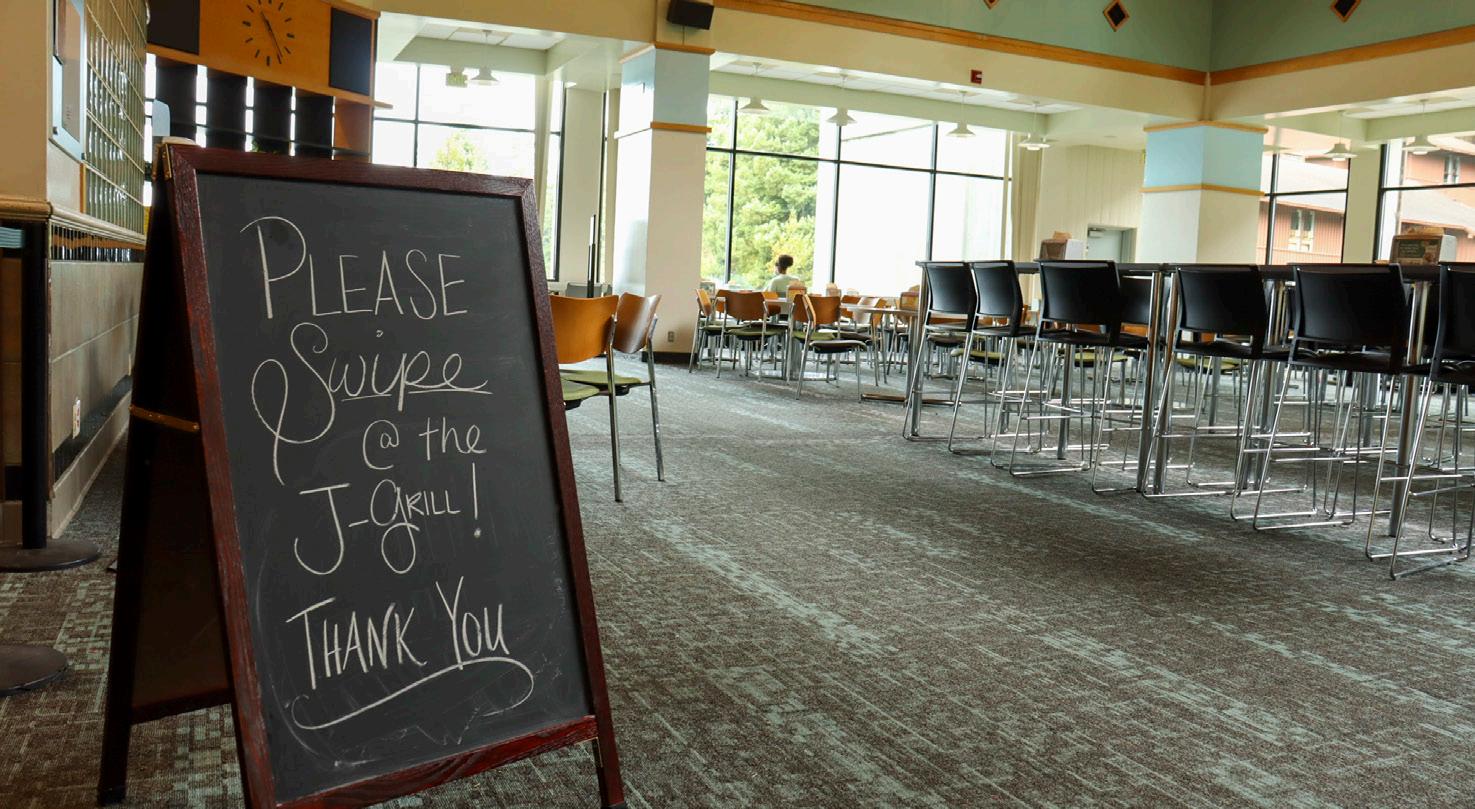 PLEASE
Swipe
@ the
J-GRILL!
THANK YOU